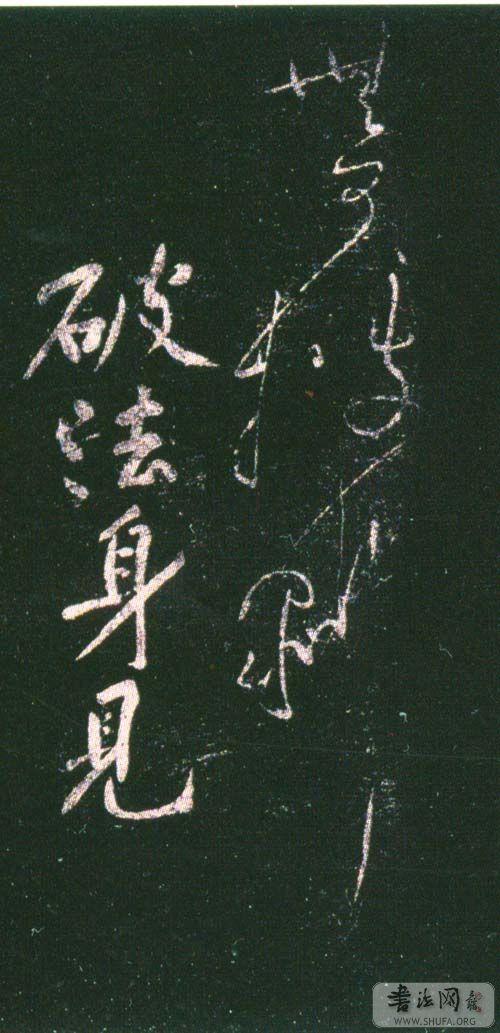 無可
破法身見
書法网
WWW.SHUFA.ORG